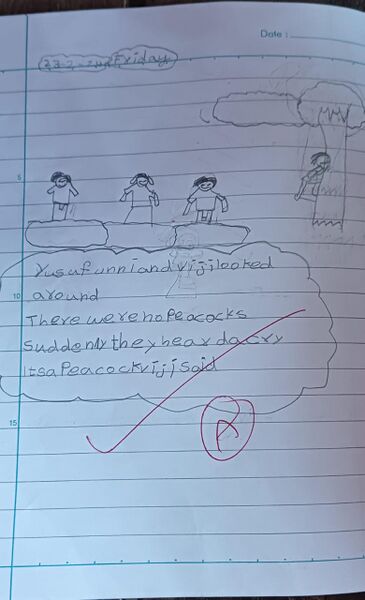 Date :
Friday
5
Yusuf unni and vijji looked
10
around
There were no Peacocks
Suddenly they heard a cry
Its a Peacock vijji said
15